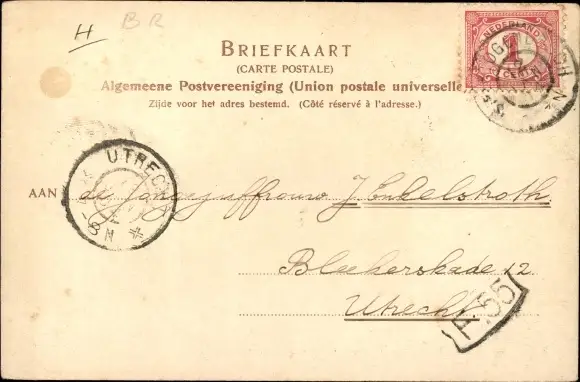 H BR
NEDERLAND
1
CENT
BRIEFKAART
(CARTE POSTALE)
Algemeene Postvereeniging (Union postale universelle
Zijde voor het adres bestemd. (Côté réservé à l'adresse.)
UTRECHT
8-N
AAN de Jongejuffrouw J. Enkelstroth.
Bleekerskade 12
Utrecht.
A 65